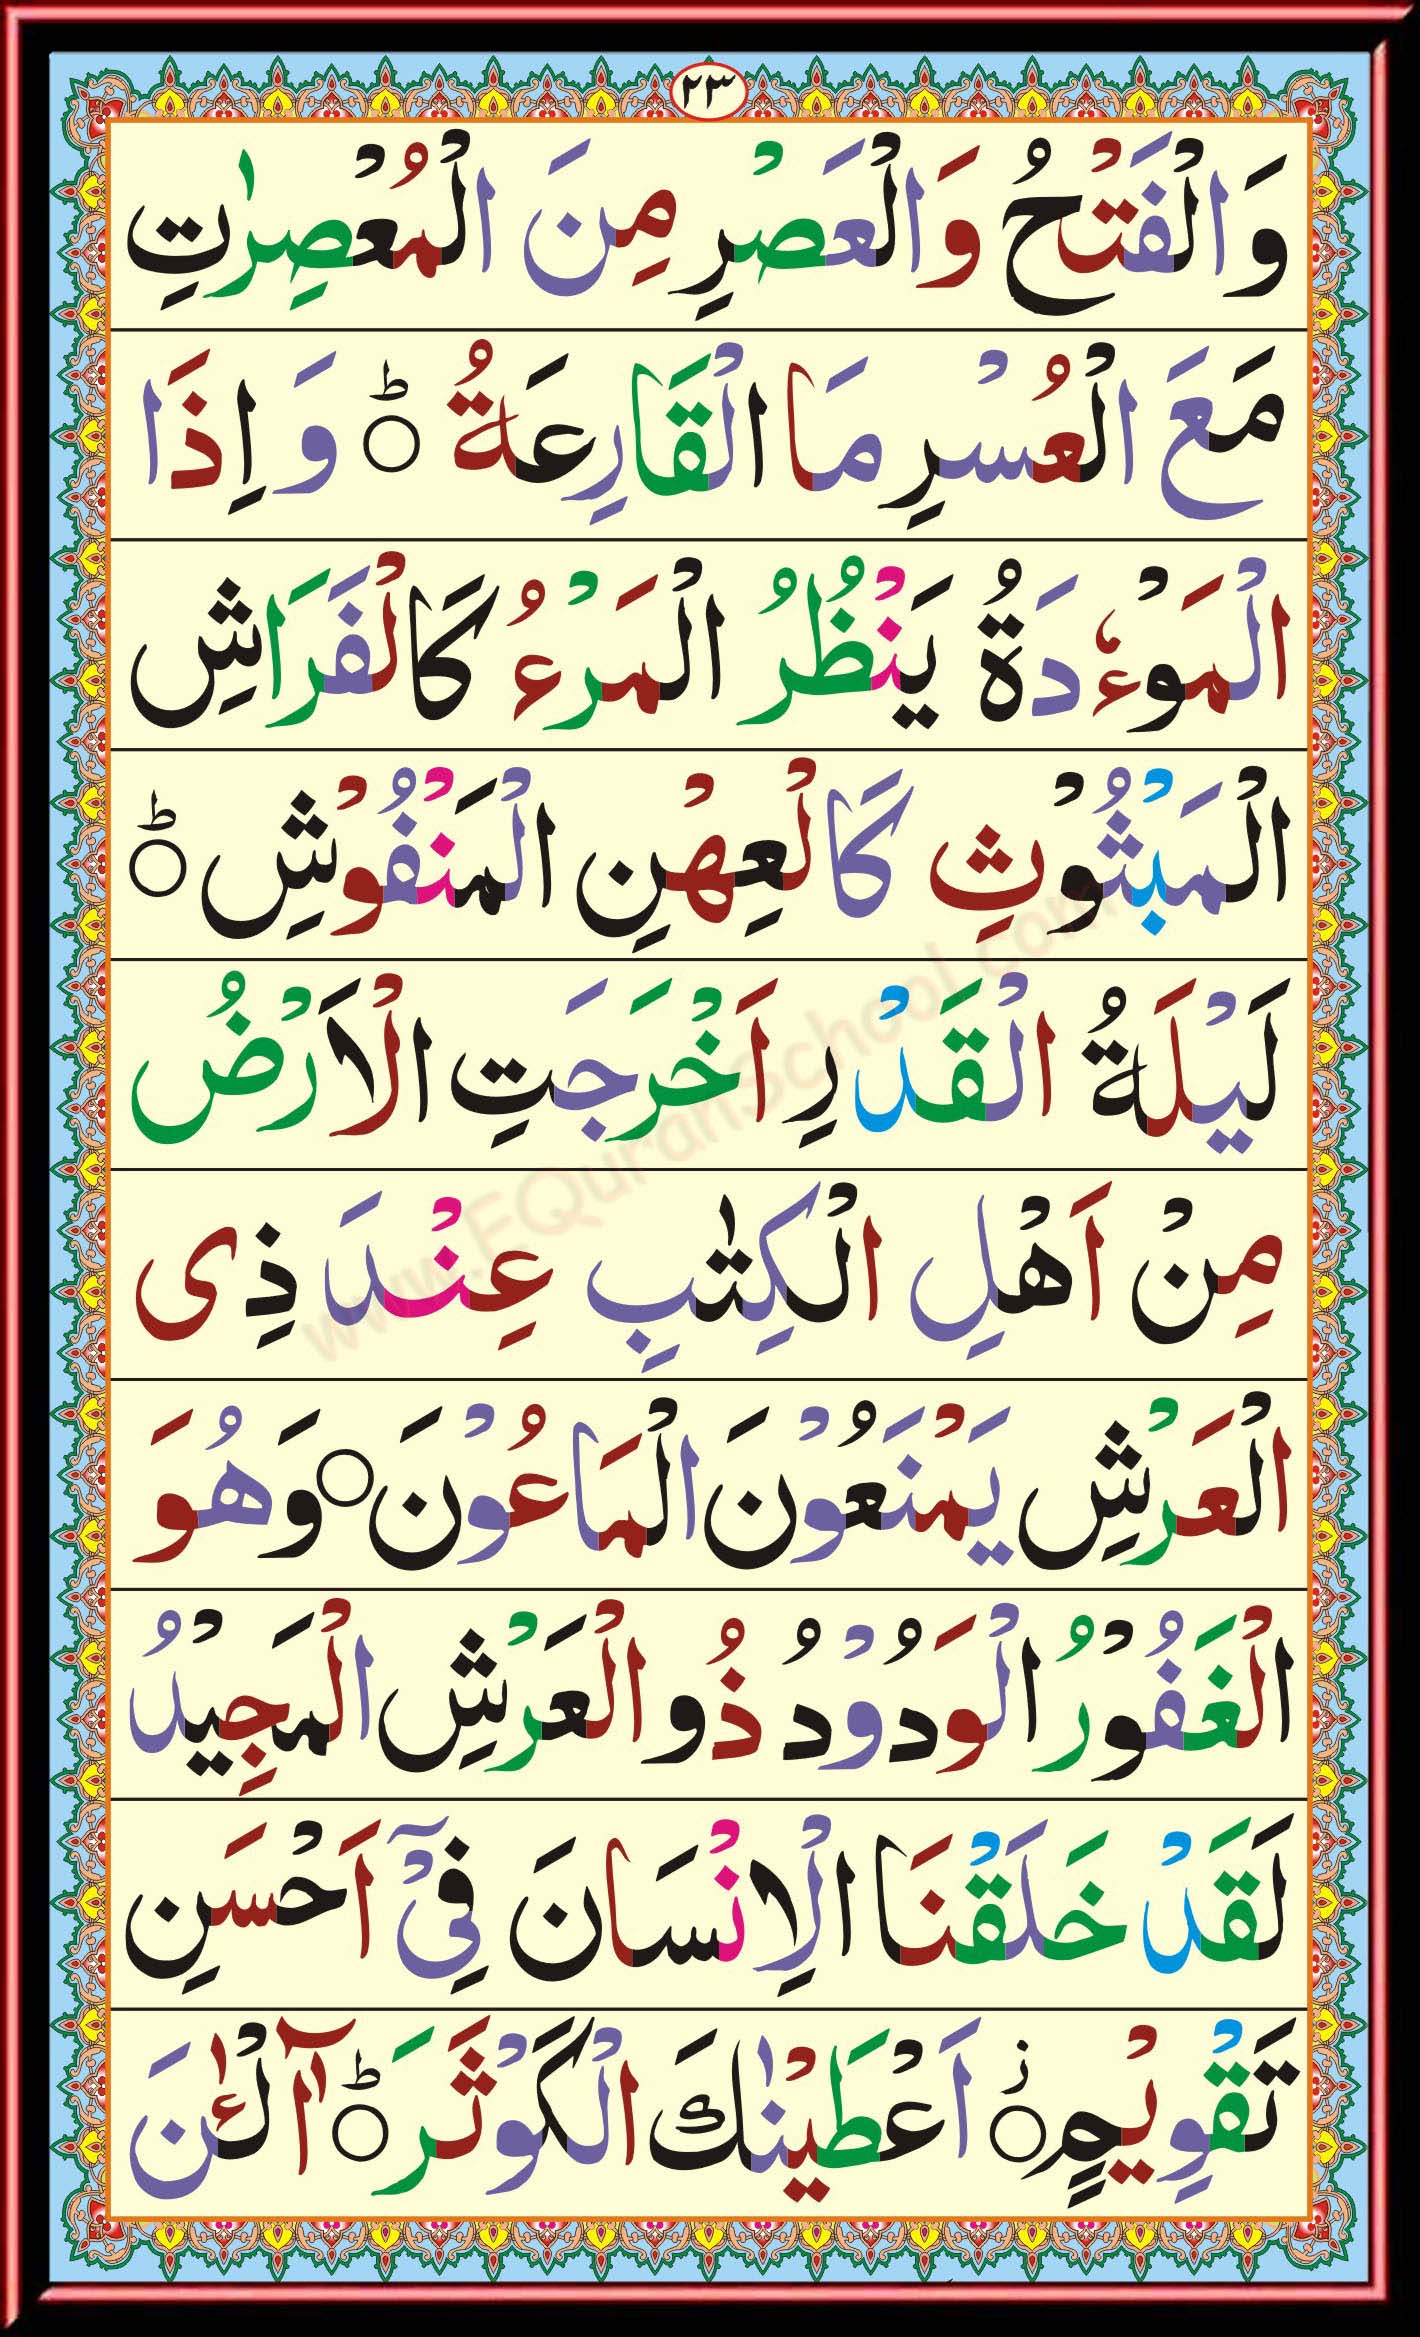 ٢٣
وَالْفَتْحُ وَالْعَصْرِ مِنَ الْمُعْصِرٰتِ
مَعَ الْعُسْرِ مَا الْقَارِعَةُ ؕ وَ اِذَا
الْمَوْءٗدَةُ يَنْظُرُ الْمَرْءُ كَالْفَرَاشِ
الْمَبْثُوْثِ كَالْعِهْنِ الْمَنْفُوْشِ ؕ
لَيْلَةُ الْقَدْرِ اَخْرَجَتِ الْاَرْضُ
مِنْ اَهْلِ الْكِتٰبِ عِنْدَ ذِى
الْعَرْشِ يَمْنَعُوْنَ الْمَاعُوْنَ ○ وَهُوَ
الْغَفُوْرُ الْوَدُوْدُ ذُو الْعَرْشِ الْمَجِيْدُ
لَقَدْ خَلَقْنَا الْاِنْسَانَ فِىْٓ اَحْسَنِ
تَقْوِيْمٍ ز اَعْطَيْنٰكَ الْكَوْثَرَ ؕ آٰلْـٰٔنَ
www.EQuranSchool.com